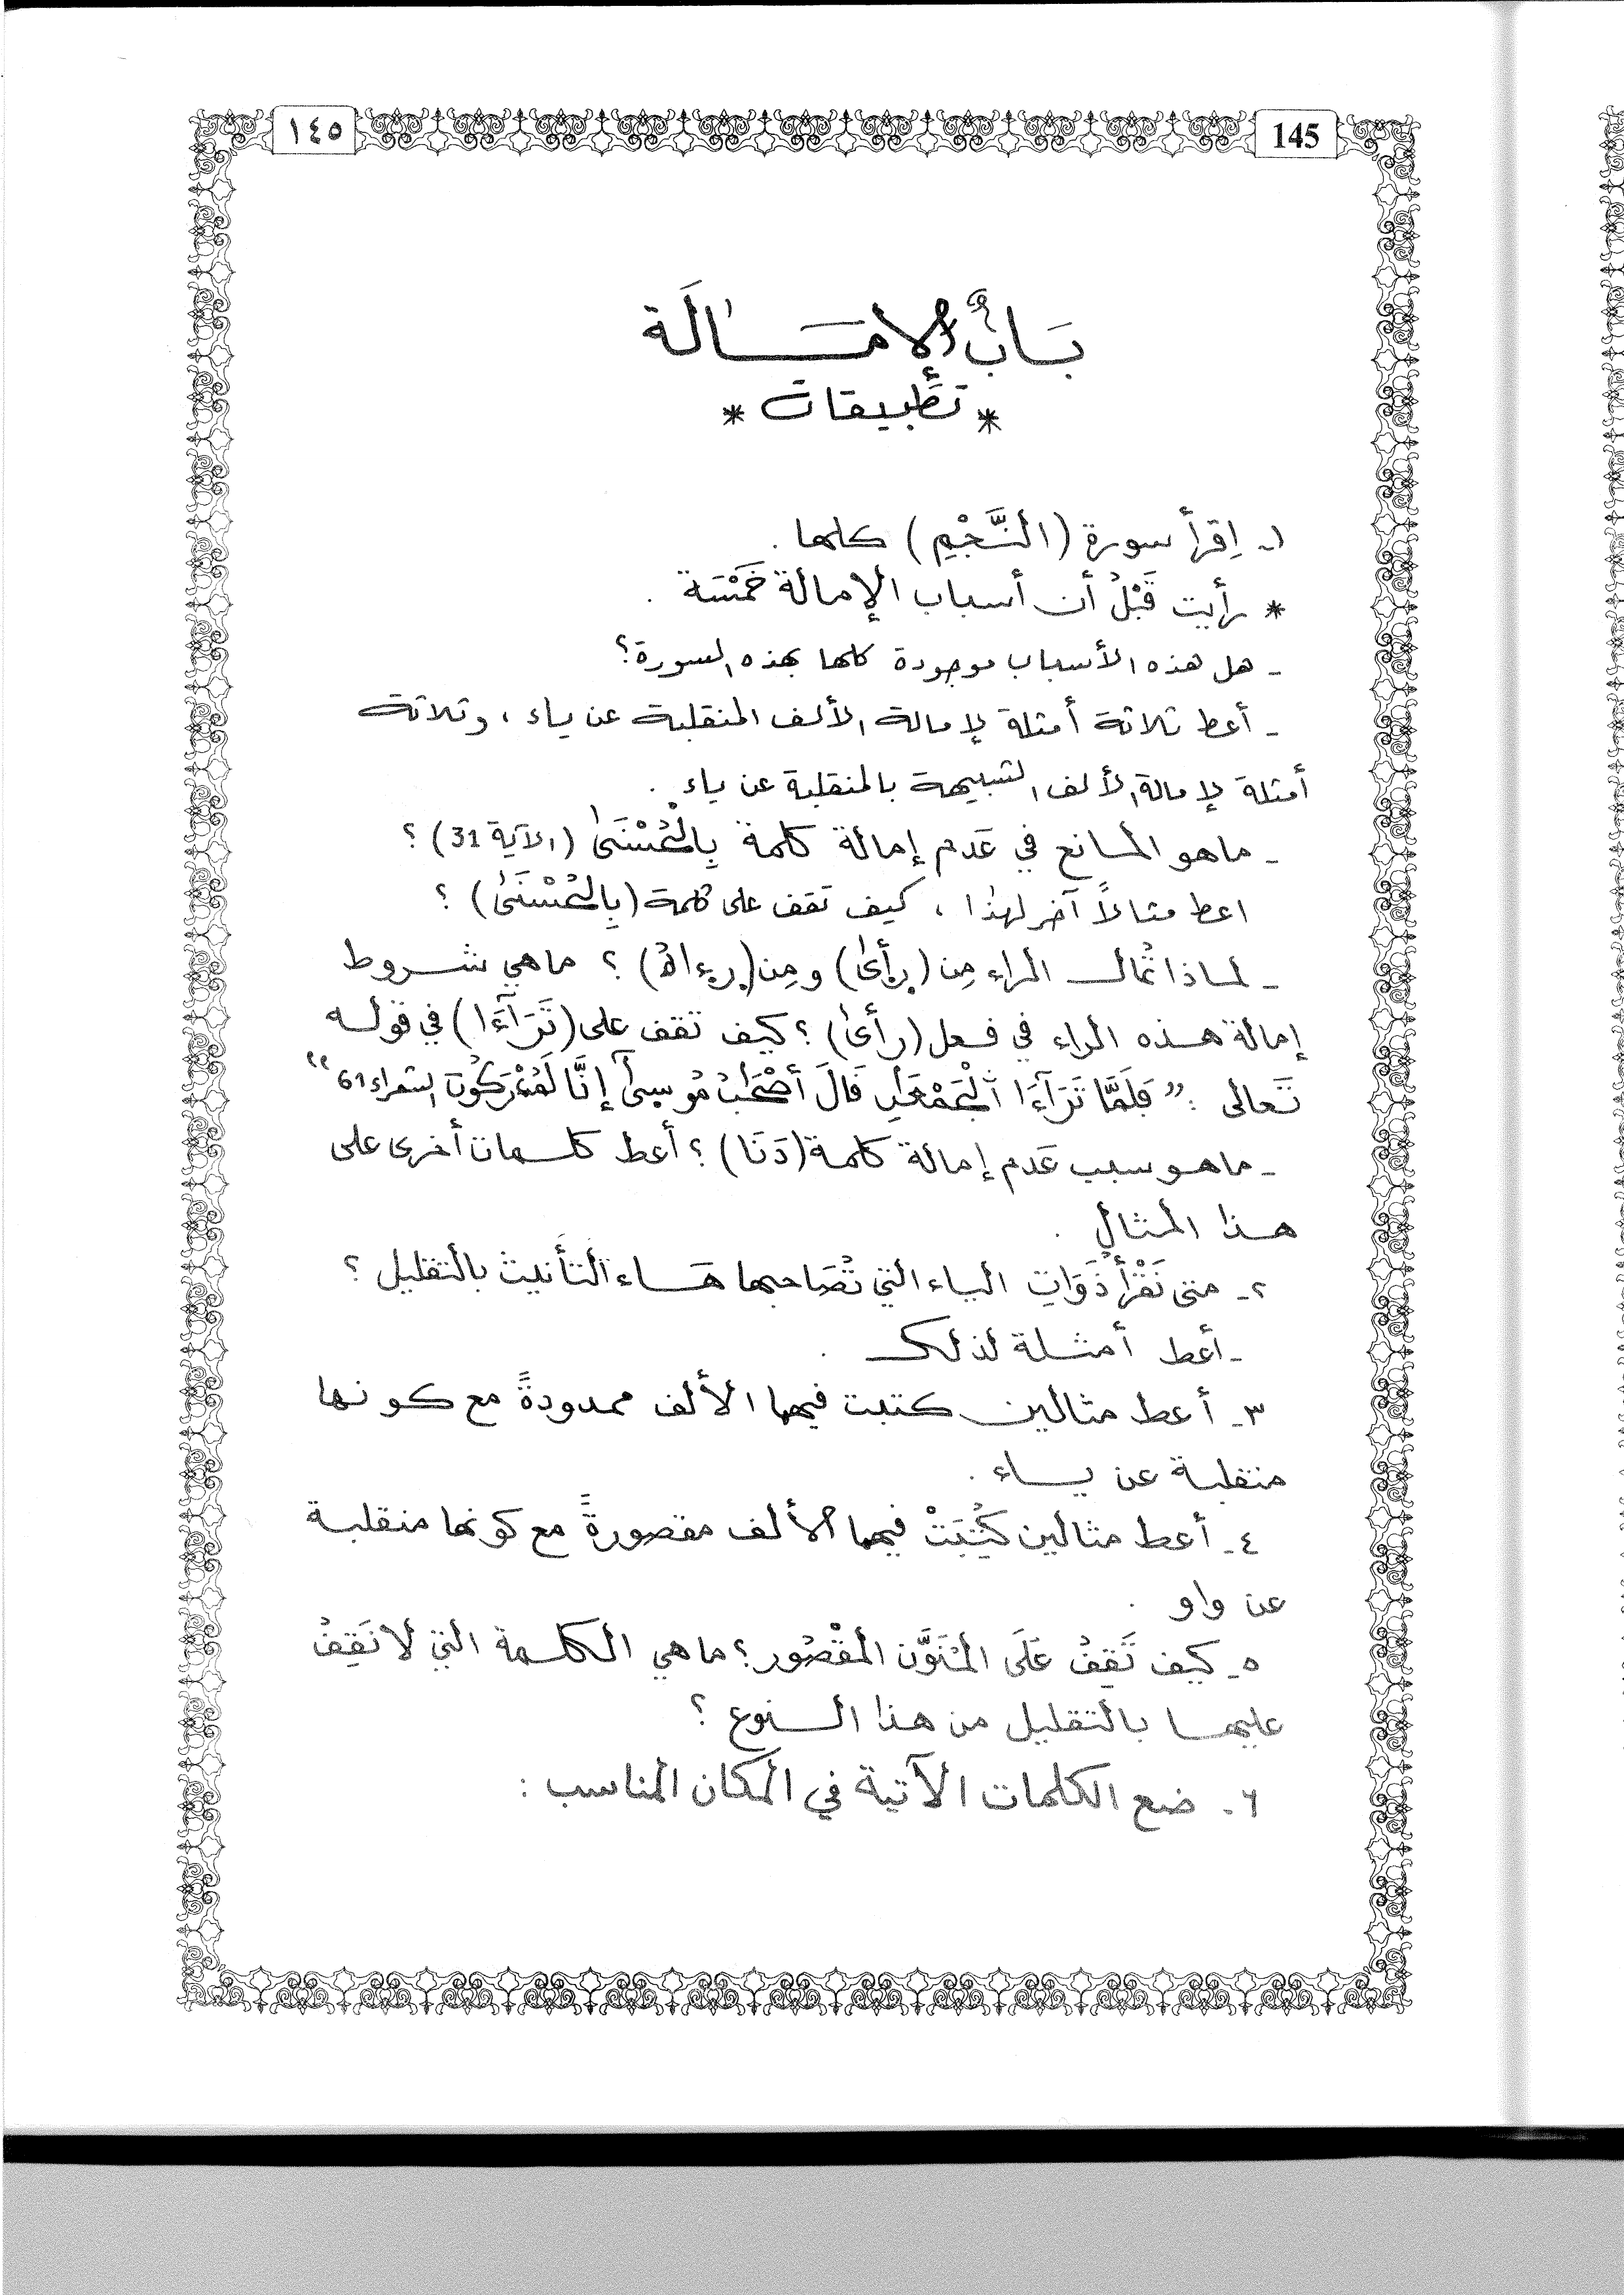 ١٤٥
145
بَابُ الإمَالَة
* تطبيقات *
١- اِقرأ سورة (النَّجْمِ) كلها .
* رأيت قَبْلُ أن أسباب الإمالة خَمْسَة .
- هل هذه الأسباب موجودة كلها بهذه السورة؟
- أعط ثلاثة أمثلة لإمالة الألف المنقلبة عن ياء ، وثلاثة
أمثلة لإمالة الألف الشبيهة بالمنقلبة عن ياء .
- ماهو المانع في عَدم إمالة كلمة بِالْحُسْنَى (الآية 31) ؟
اعط مثالاً آخر لهذا ، كيف تقف على كلمة (بِالْحُسْنَى) ؟
- لماذا تُمال الراء مِن (رأى) ومِن (رءاهُ) ؟ ماهي شروط
إمالة هذه الراء في فعل (رأى) ؟ كيف تقف على (تَرَآءَا) في قوله
تَعالى : ”فَلَمَّا تَرَآءَا اَلْجَمْعَانِ قَالَ أَصْحَابُ مُوسَىٰ إِنَّا لَمُدْرَكُونَ الشعراء 61“
- ماهو سبب عَدم إمالة كلمة (دَنَا) ؟ أعط كلمات أخرى على
هذا المثال .
٢- متى نَقْرَأُ ذَوَاتِ الياء التي تُصَاحبها هَاء التأنيث بالتقليل ؟
- أعط أمثلة لذلك .
٣- أعط مثالين كتبت فيها الألف ممدودةً مع كونها
منقلبة عن ياء .
٤- أعط مثالين كُتِبَتْ فيها الألف مقصورةً مع كونها منقلبة
عن واو .
٥- كيف تَقِفُ عَلَى المُنَوَّن المقْصُور ؟ ماهي الكلمة التي لا نَقِفُ
عليها بالتقليل من هذا النوع ؟
٦- ضع الكلمات الآتية في المكان المناسب :